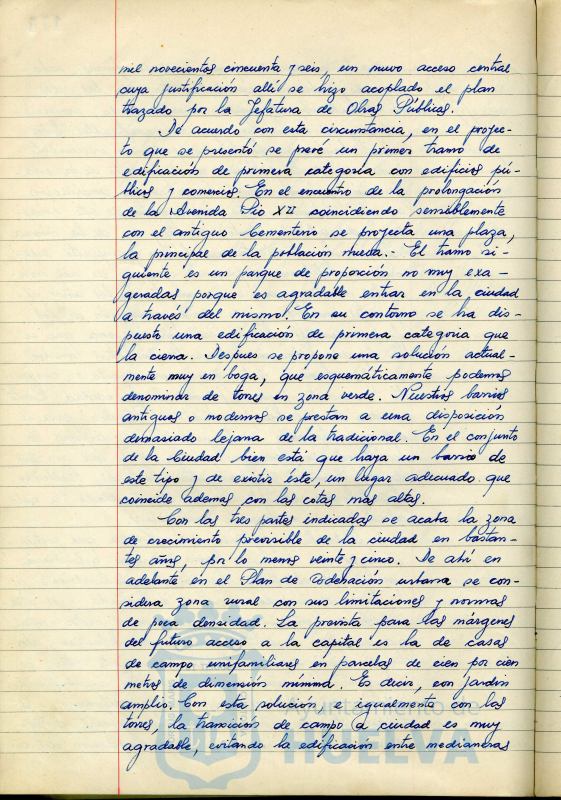 mil novecientos cincuenta y seis, un nuevo acceso central
cuya justificación allí se hizo acoplado el plan
trazado por la Jefatura de Obras Públicas.
De acuerdo con esta circunstancia, en el proyec-
to que se presentó se prevé un primer tramo de
edificación de primera categoría con edificios pú-
blicos y comercios. En el encuentro de la prolongación
de la Avenida Pío XII coincidiendo sensiblemente
con el antiguo Cementerio se proyecta una plaza,
la principal de la población nueva.- El tramo si-
guiente es un parque de proporción no muy exa-
geradas porque es agradable entrar en la ciudad
a través del mismo. En su contorno se ha dis-
puesto una edificación de primera categoría que
la cierra. Despues se propone una solución actual-
mente muy en boga, que esquemáticamente podemos
denominar de torres en zona verde. Nuestros barrios
antiguos o modernos se prestan a una disposición
demasiado lejana de la tradicional. En el conjunto
de la Ciudad bien está que haya un barrio de
este tipo y de existir éste, un lugar adecuado que
coincide ademas con las cotas mas altas.
Con las tres partes indicadas se acaba la zona
de crecimiento previsible de la ciudad en bastan-
tes años, por lo menos veinte y cinco. De ahí en
adelante en el Plan de Ordenación urbana se con-
sidera zona rural con sus limitaciones y normas
de poca densidad. La prevista para las márgenes
del futuro acceso a la capital es la de casas
de campo unifamiliares en parcelas de cien por cien
metros de dimensión mínima. Es decir, con jardín
amplio. Con esta solución, e igualmente con las
torres, la transición de campo a ciudad es muy
agradable, evitando la edificación entre medianeras
HUELVA